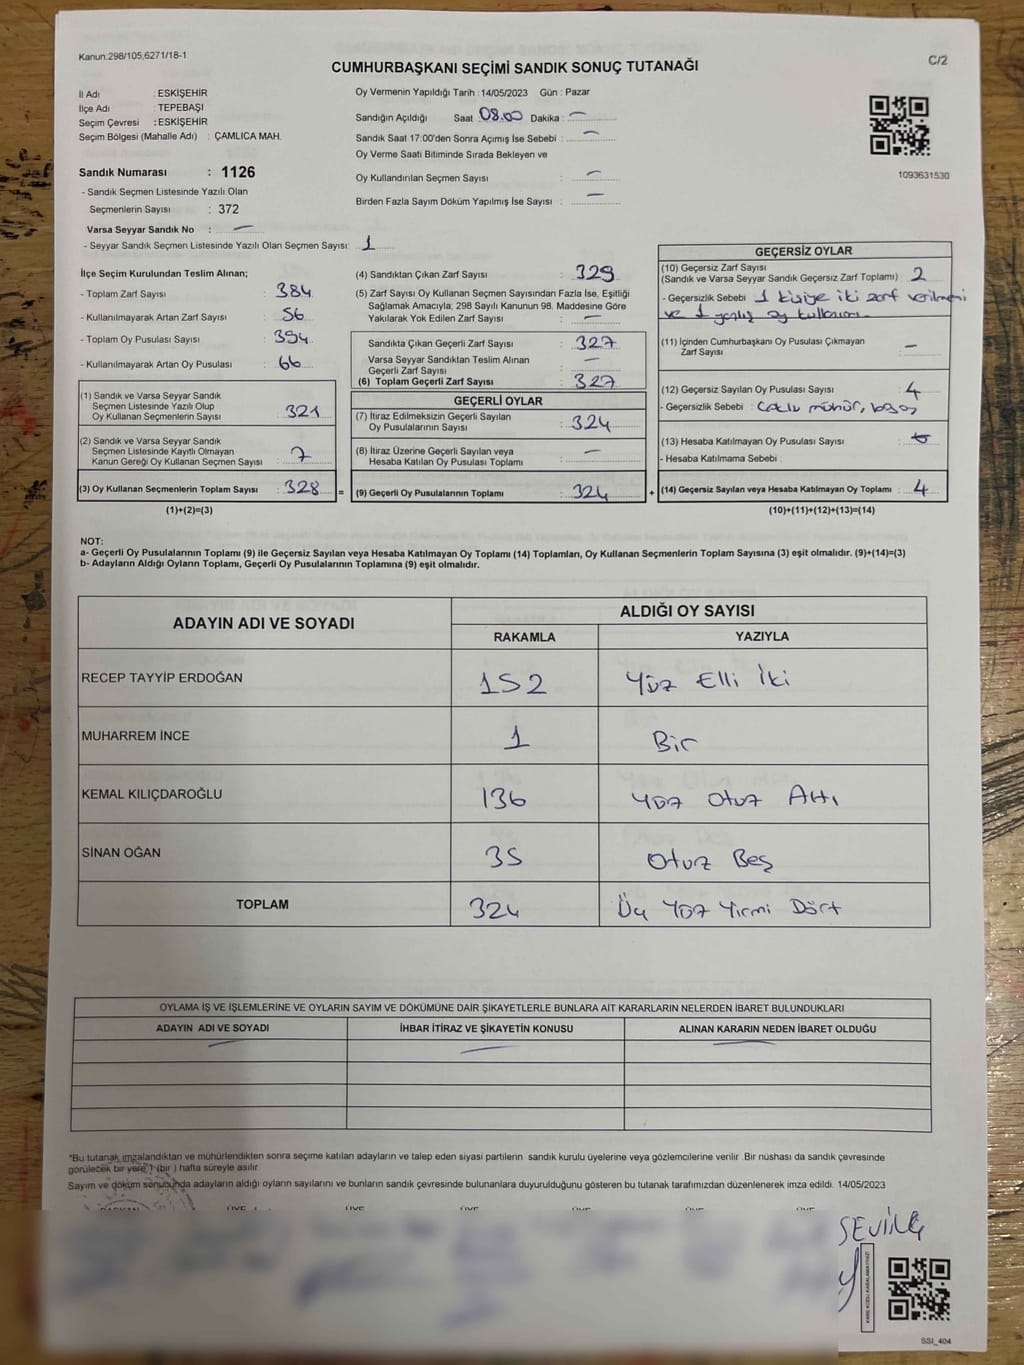 Kanun:298/105,6271/18-1
C/2
CUMHURBAŞKANI SEÇİMİ SANDIK SONUÇ TUTANAĞI
İl Adı : ESKİŞEHİR
İlçe Adı : TEPEBAŞI
Seçim Çevresi : ESKİŞEHİR
Seçim Bölgesi (Mahalle Adı) : ÇAMLICA MAH.
Sandık Numarası : 1126
- Sandık Seçmen Listesinde Yazılı Olan
Seçmenlerin Sayısı : 372
Varsa Seyyar Sandık No : —
- Seyyar Sandık Seçmen Listesinde Yazılı Olan Seçmen Sayısı: 1
Oy Vermenin Yapıldığı Tarih :14/05/2023 Gün : Pazar
Sandığın Açıldığı Saat 08.00 Dakika : —
Sandık Saat 17:00'den Sonra Açımış İse Sebebi : —
Oy Verme Saati Bitiminde Sırada Bekleyen ve
Oy Kullandırılan Seçmen Sayısı : —
Birden Fazla Sayım Döküm Yapılmış İse Sayısı : —
1093631530
İlçe Seçim Kurulundan Teslim Alınan;
- Toplam Zarf Sayısı : 384
- Kullanılmayarak Artan Zarf Sayısı : 56
- Toplam Oy Pusulası Sayısı : 394
- Kullanılmayarak Artan Oy Pusulası : 66
(1) Sandık ve Varsa Seyyar Sandık
Seçmen Listesinde Yazılı Olup
Oy Kullanan Seçmenlerin Sayısı : 321
(2) Sandık ve Varsa Seyyar Sandık
Seçmen Listesinde Kayıtlı Olmayan
Kanun Gereği Oy Kullanan Seçmen Sayısı : 7
(3) Oy Kullanan Seçmenlerin Toplam Sayısı : 328 =
(1)+(2)=(3)
(4) Sandıktan Çıkan Zarf Sayısı : 329
(5) Zarf Sayısı Oy Kullanan Seçmen Sayısından Fazla İse, Eşitliği
Sağlamak Amacıyla, 298 Sayılı Kanunun 98. Maddesine Göre
Yakılarak Yok Edilen Zarf Sayısı : —
Sandıkta Çıkan Geçerli Zarf Sayısı : 327
Varsa Seyyar Sandıktan Teslim Alınan
Geçerli Zarf Sayısı : —
(6) Toplam Geçerli Zarf Sayısı : 327
GEÇERLİ OYLAR
(7) İtiraz Edilmeksizin Geçerli Sayılan
Oy Pusulalarının Sayısı : 324
(8) İtiraz Üzerine Geçerli Sayılan veya
Hesaba Katılan Oy Pusulası Toplamı : —
(9) Geçerli Oy Pusulalarının Toplamı : 324 +
GEÇERSİZ OYLAR
(10) Geçersiz Zarf Sayısı
(Sandık ve Varsa Seyyar Sandık Geçersiz Zarf Toplamı) : 2
- Geçersizlik Sebebi : 1 kişiye iki zarf verilmesi
ve 1 yanlış oy kullanım
(11) İçinden Cumhurbaşkanı Oy Pusulası Çıkmayan
Zarf Sayısı : —
(12) Geçersiz Sayılan Oy Pusulası Sayısı : 4
- Geçersizlik Sebebi : Çoklu mühür, boş
(13) Hesaba Katılmayan Oy Pusulası Sayısı :
- Hesaba Katılmama Sebebi :
(14) Geçersiz Sayılan veya Hesaba Katılmayan Oy Toplamı : 4
(10)+(11)+(12)+(13)=(14)
NOT:
a- Geçerli Oy Pusulalarının Toplamı (9) ile Geçersiz Sayılan veya Hesaba Katılmayan Oy Toplamı (14) Toplamları, Oy Kullanan Seçmenlerin Toplam Sayısına (3) eşit olmalıdır. (9)+(14)=(3)
b- Adayların Aldığı Oyların Toplamı, Geçerli Oy Pusulalarının Toplamına (9) eşit olmalıdır.
ADAYIN ADI VE SOYADI ALDIĞI OY SAYISI
RAKAMLA YAZIYLA
RECEP TAYYİP ERDOĞAN 152 Yüz Elli İki
MUHARREM İNCE 1 Bir
KEMAL KILIÇDAROĞLU 136 Yüz Otuz Altı
SİNAN OĞAN 35 Otuz Beş
TOPLAM 324 Üç Yüz Yirmi Dört
OYLAMA İŞ VE İŞLEMLERİNE VE OYLARIN SAYIM VE DÖKÜMÜNE DAİR ŞİKAYETLERLE BUNLARA AİT KARARLARIN NELERDEN İBARET BULUNDUKLARI
ADAYIN ADI VE SOYADI İHBAR İTİRAZ VE ŞİKAYETİN KONUSU ALINAN KARARIN NEDEN İBARET OLDUĞU
— — —
*Bu tutanak imzalandıktan ve mühürlendikten sonra seçime katılan adayların ve talep eden siyasi partilerin sandık kurulu üyelerine veya gözlemcilerine verilir. Bir nüshası da sandık çevresinde
görülecek bir yere 1 (bir ) hafta süreyle asılır.
Sayım ve döküm sonucunda adayların aldığı oyların sayılarını ve bunların sandık çevresinde bulunanlara duyurulduğunu gösteren bu tutanak tarafımızdan düzenlenerek imza edildi. 14/05/2023
BAŞKAN ÜYE ÜYE ÜYE ÜYE ÜYE ÜYE
SEVİNÇ
SSI_404